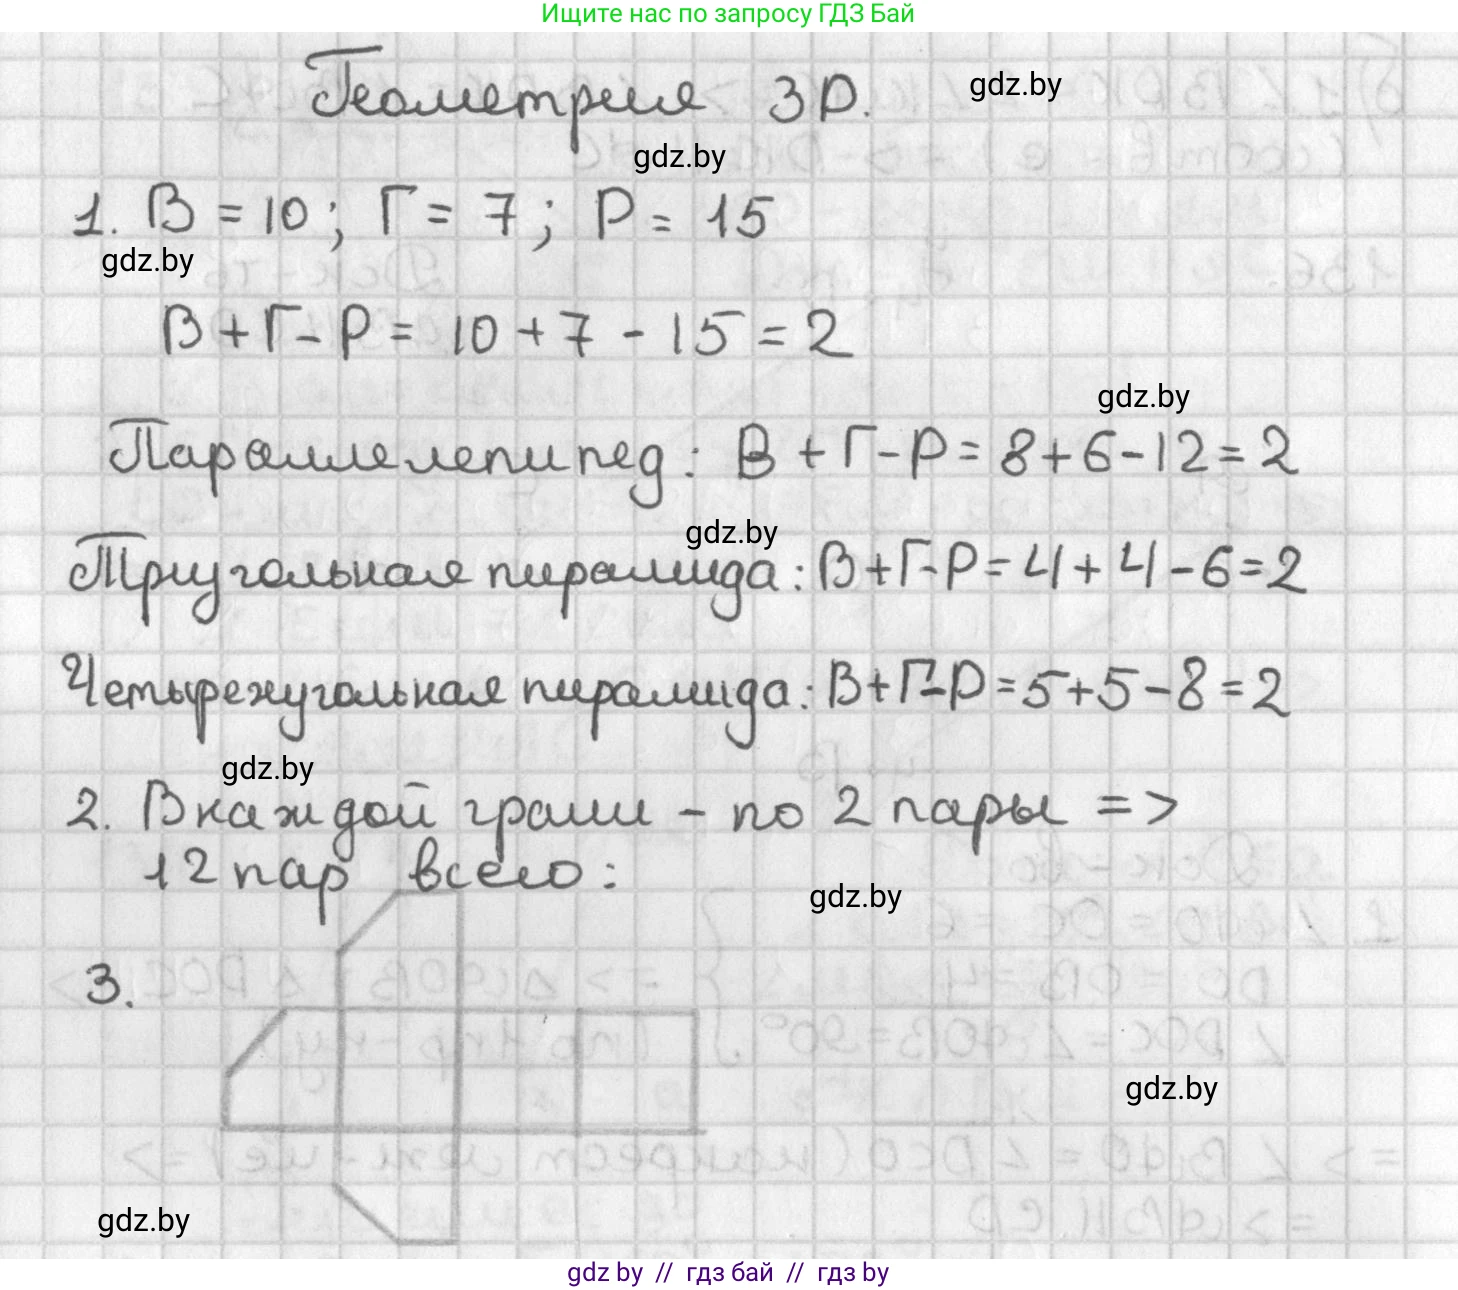 Ищите нас по запросу ГДЗ Бай
Геометрия 3D.
gdz.by
gdz.by
1. В = 10; Г = 7; Р = 15
gdz.by
В + Г - Р = 10 + 7 - 15 = 2
gdz.by
Параллелепипед: В + Г - Р = 8 + 6 - 12 = 2
gdz.by
Триугольная пирамида: В + Г - Р = 4 + 4 - 6 = 2
Четырехугольная пирамида: В + Г - Р = 5 + 5 - 8 = 2
gdz.by
2. В каждой грани - по 2 пары =>
12 пар всего:
gdz.by
3.
gdz.by
gdz.by
gdz by // гдз бай // гдз by